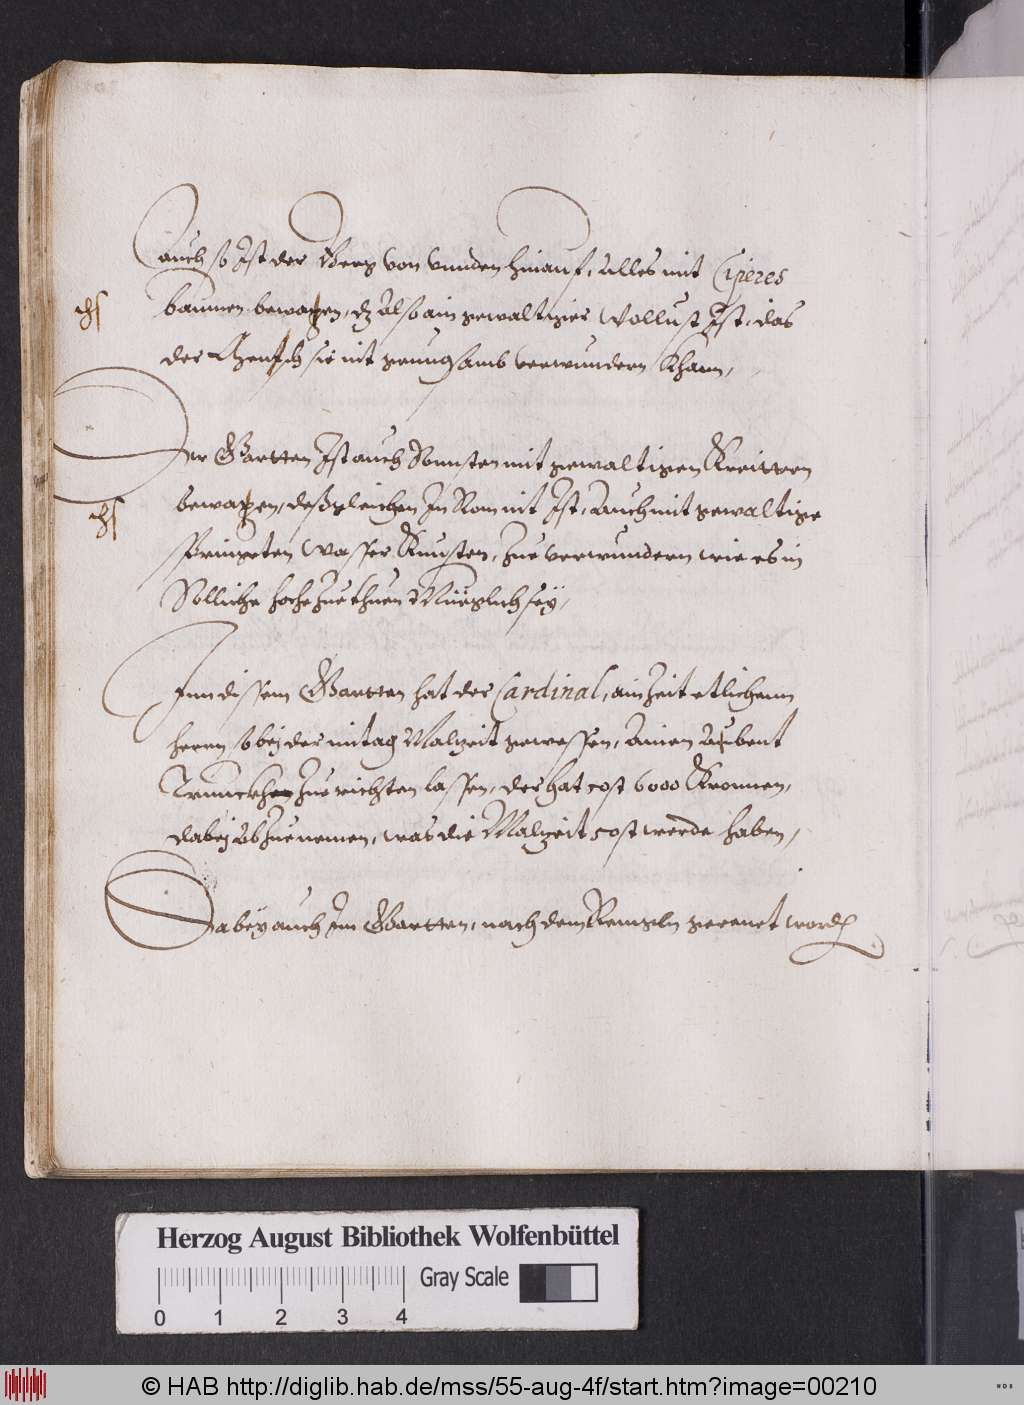 auch so Ist der Berg von Vnnden hinauf, alles mit Cipres
baumen bewaxen, dz also ain gewaltiger Wollust Ist, das
der Mensch sie nit genugsamb verwundern Khann,
chs
Der Gartten Ist auch Sonnsten mit gewaltigen Kreittern
bewaxen, desßgleichen In Rom nit Ist, Auch mit gewaltige
chs
springeten Wasser Künsten, Zue verwundern wie es in
Solliche hoche Zue thuen Müeglich sey,
Inn dissem Gartten hat der Cardinal, ain Zeit etlichenn
herrn so bej der mitag Malzeit gewessen, Ainen Abent
Trunckh Zue richten lassen, der hat cost 6000 Kronnen,
dabej abZuenemen, was die Malzeit cost werde haben,
Dabey auch Im Gartten, nach dem Ringeln gerenet
Herzog August Bibliothek Wolfenbüttel
Gray Scale
0 1 2 3 4
© HAB http://diglib.hab.de/mss/55-aug-4f/start.htm?image=00210